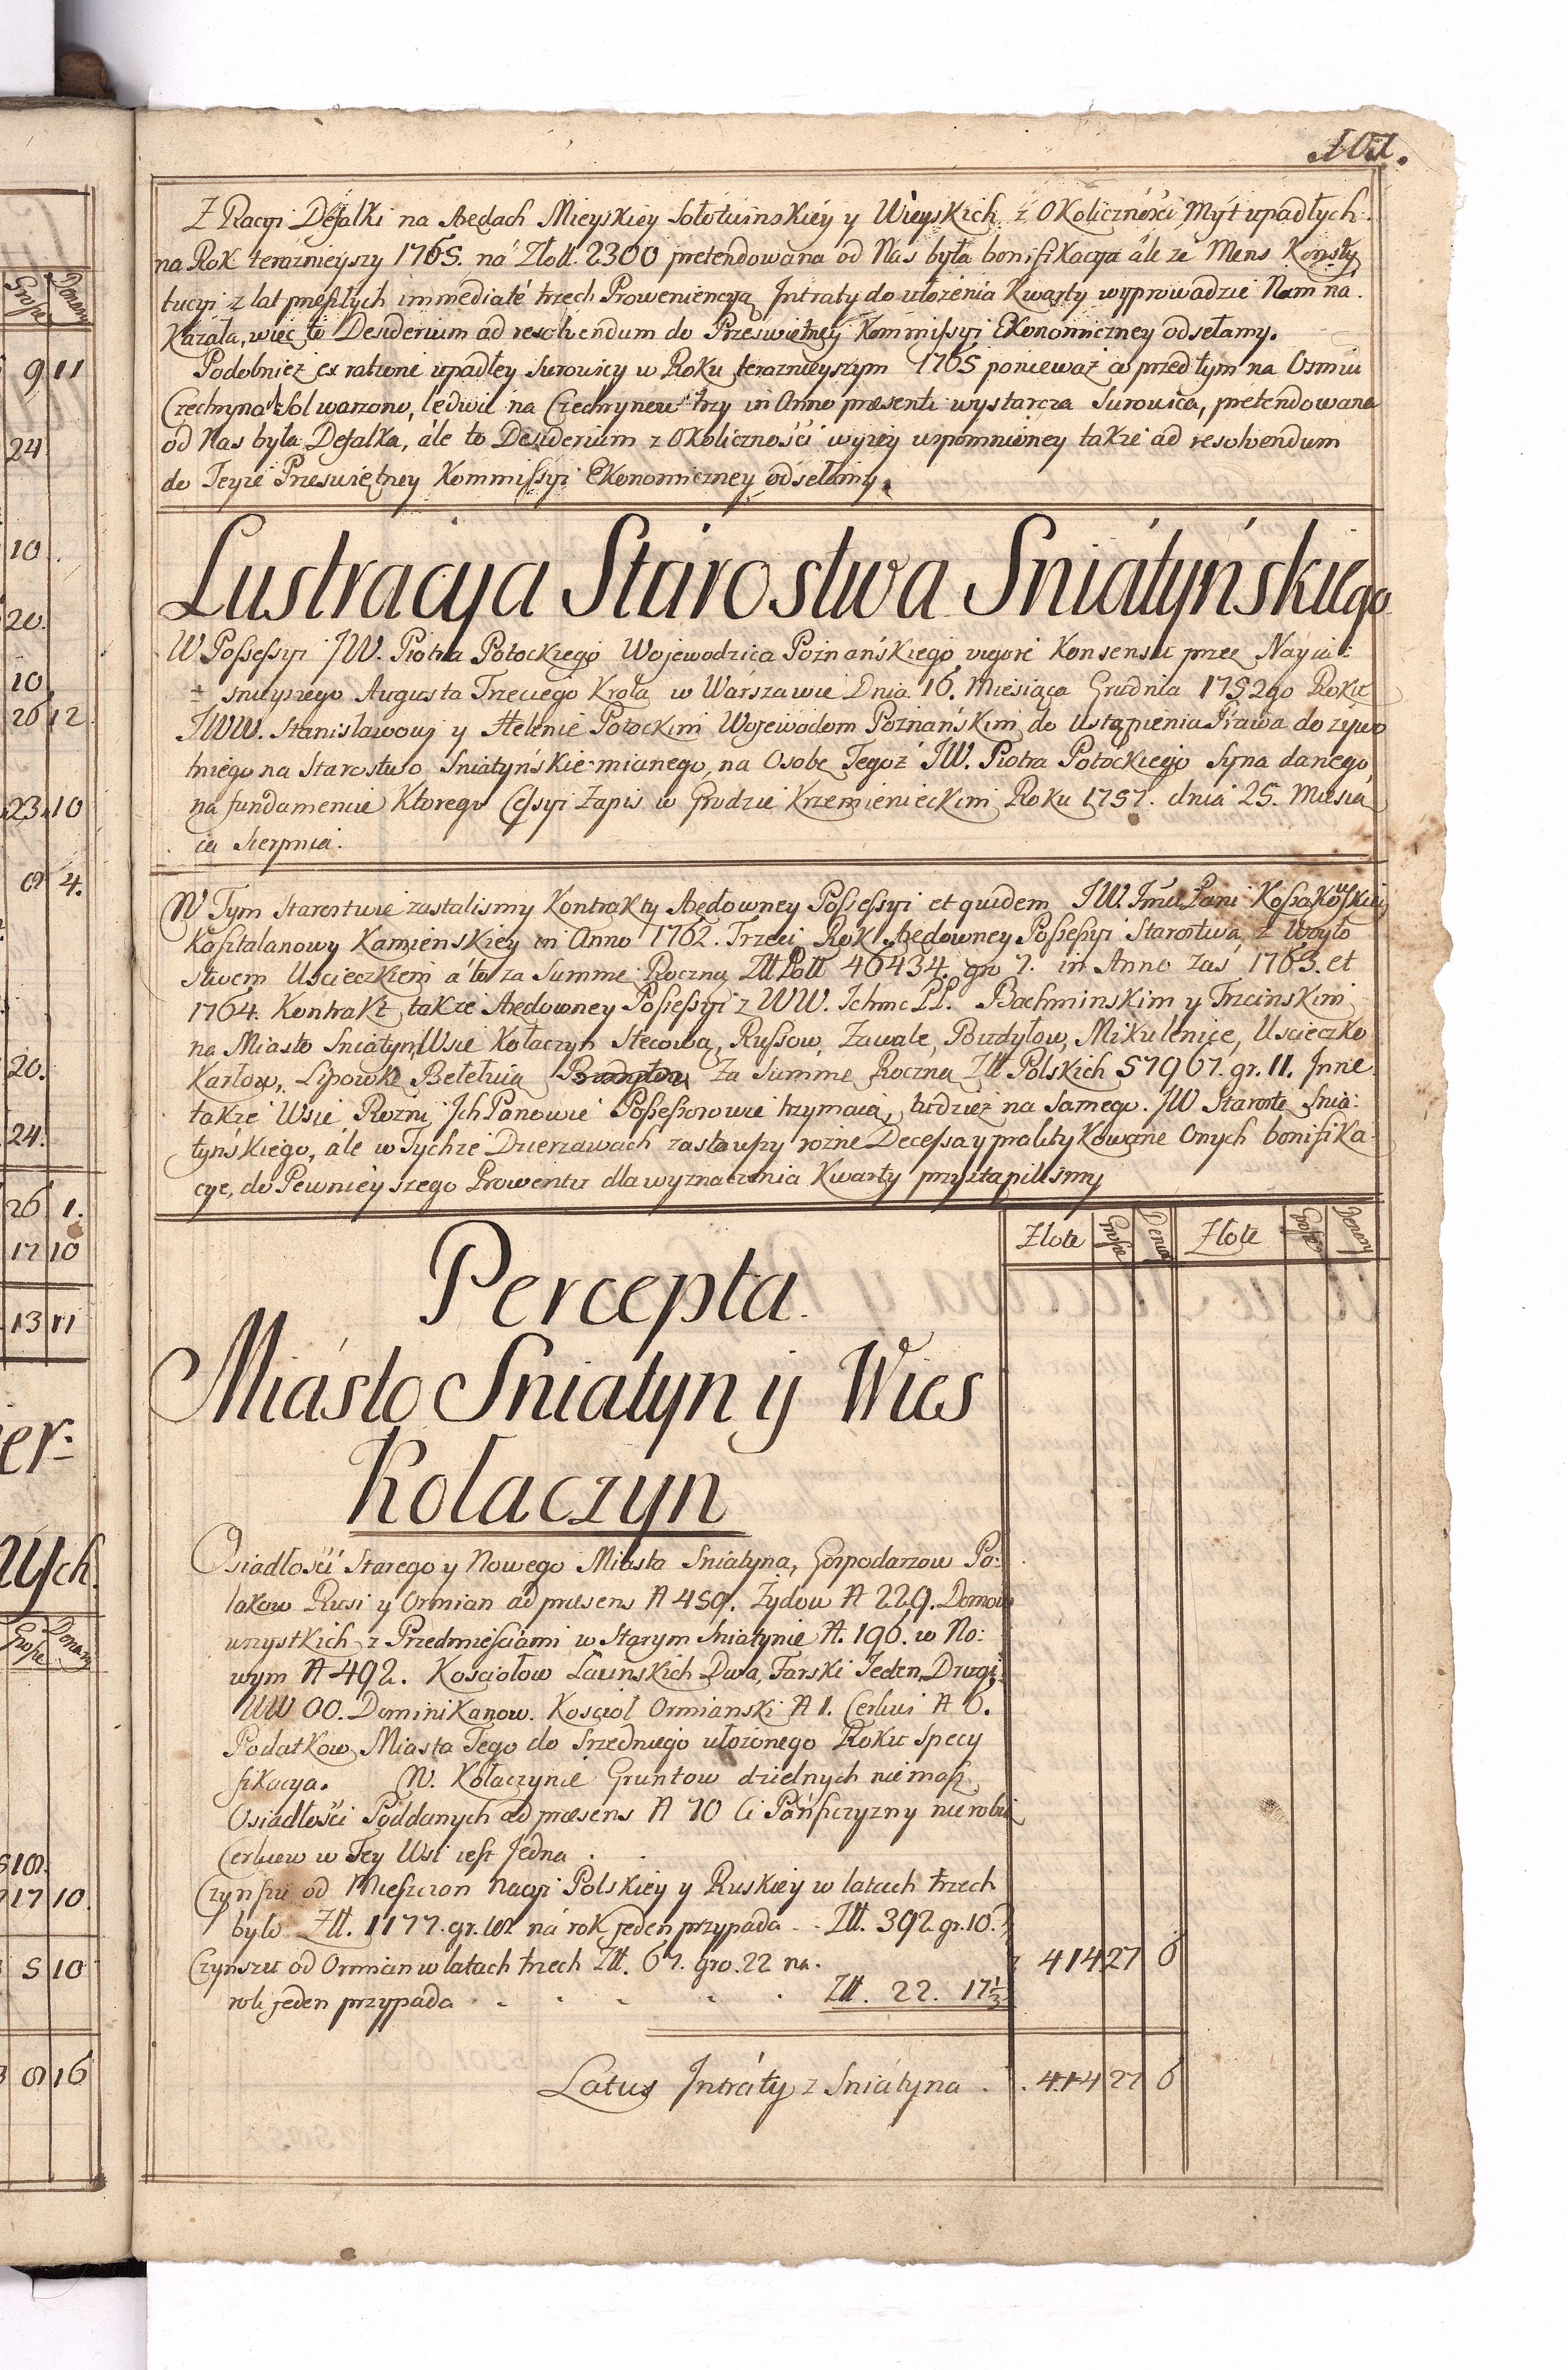 101.
Z Racyi Defalki na Arędach Mieyskiey Sołotwinskiéy y Wieyskich z Okolicznósci Myt upadłych
na Rok teraznieyszy 1765. na Złott. 2300 pretendowana od Nas była bonifikacya ále ze Mens Konsty
tucyi z lat przeszłych immediaté trzech Proweniencyą Intraty do ułożenia Kwarty wyprowadzić Nam na
Kazáła, więc to Desiderium ad resolvendum do Przeswiętney Kommissyi Ekonomiczney odsełamy.
Podobnież ex ratione upadłey Surowicy w Roku teraznieyszym 1765 ponieważ co przed tym na Osmiu
Czechrynach Sol warzono, ledwie na Czechrynow trzy in Anno præsenti wystarcza Surowica, pretendowana
od Nas była Defalka, ále to Desiderium z Okolicznósci wyżey wspomnioney takze ad resolvendum
do Teyże Przeswiętney Kommissyi Ekonomiczney odsełamy.
Lustracya Stárostwa Sniátyńskiego
W Possessyi JW. Piotra Potockiego Wojewodzica Poznańskiego vigore Konsensu przez Nayia:
snieyszego Augusta Trzeciego Krola w Warszawie Dnia 16. Miesiąca Grudnia 1752go Roku
JWW. Stanisławowi y Helenie Potockim Wojewodom Poznańskim do Ustąpienia Prawa dozywo
tniego na Starostwo Sniatyńskie mianego, na Osobę Tegoż JW. Piotra Potockiego Syna danego
na fundamencie Ktorego Cessyi Zapis w Grodzie Krzemienieckim Roku 1757. dnia 25. Miesią
ca Sierpnia.
W Tym Starostwie zastalismy Kontrakty Arędowney Possessyi et quidem JW. Jmći Pani Kossakowskiey
Kasztalanowy Kamienskiey in Anno 1762. Trzeci Rok Arędowney Possessyi Starostwa, z Woyto
stwem Uscieczkiem á to za Summę Roczną Złł Poll 46434. gro 7. in Anno zaś 1763. et
1764. Kontrakt takze Arędowney Possessyi z WW. Ichmc PP. Bachminskim y Trzcinskim
na Miasto Sniatyn, Wsie Kołaczyn Stecową, Russow, Zawale, Budyłow, Mikulence, Uscieczko
Karłow, Lipowke Bełełuią Za Summę Roczną Złł Polskich 57967. gr. 11. Inne
takze Wsie Rozni Ich Panowie Possessorowie trzymaią, tudziez na Samego JW Starostę Snia:
tyńskiego, ále w Tychze Dzierzawach zaszłwszy rozne Decessa y praktykowane Onych bonifika
cye, do Pewnieyszego Prowentu dla wyznaczenia Kwarty przystąpilismy
Złote Grosze Denary Złote Grosze Denary
Percepta
Miásto Sniatyn y Wies
Kołaczyn
Osiadłości Starego y Nowego Miasta Sniatyna, Gospodarzow Po:
lakow Rusi y Ormian ad præsens N 459. Żydow N 229. Domow
wszystkich z Przedmiesciami w Starym Sniatynie N. 196. w No:
wym N 492. Kosciołow Łacinskich Dwa, Farski Jeden, Drugi
WW OO. Dominikanow. Kosciół Ormianski N 1. Cerkwi N 6.
Podatkow Miasta Tego do Srzedniego ułożonego Roku specy
fikacya. W. Kołaczynie Gruntow dzielnych niemasz
Osiadłości Poddanych ad præsens N 70 Ci Pańszczyzny nie robią
Cerkiew w Tey Wsi iest Jedna
Czynszu od Mieszczan Nacyi Polskiey y Ruskiey w latach trzech
było Złł. 1177. gr. na rok jeden przypada Złł. 392 gr. 10.
Czynszu od Ormian w latach trzech Złł. 67. gro. 22 na
rok jeden przypada Złł. 22. 17⅓
414 27 6
Latus Intráty z Sniátyna 414 27 6